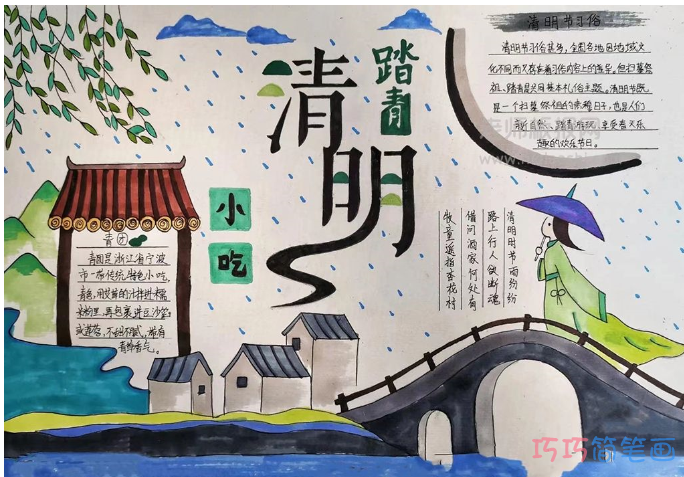 清明
踏青
小吃
清明节习俗
清明节习俗甚多，全国各地因地域文
化不同而又存在着习俗内容上的差异。但扫墓祭
祖、踏青是共同基本礼俗主题。清明节既
是一个扫墓祭祖的肃穆日子，也是人们
亲近自然、踏青游玩、享受春天乐
趣的欢乐节日。
清明时节雨纷纷
路上行人欲断魂
借问酒家何处有
牧童遥指杏花村
青团
青团是浙江省宁波
市一带传统特色小吃，
青色，用艾草的汁拌进糯
米粉里，再包裹进豆沙馅
或莲蓉，不甜不腻，带有
清香气。
巧巧简笔画